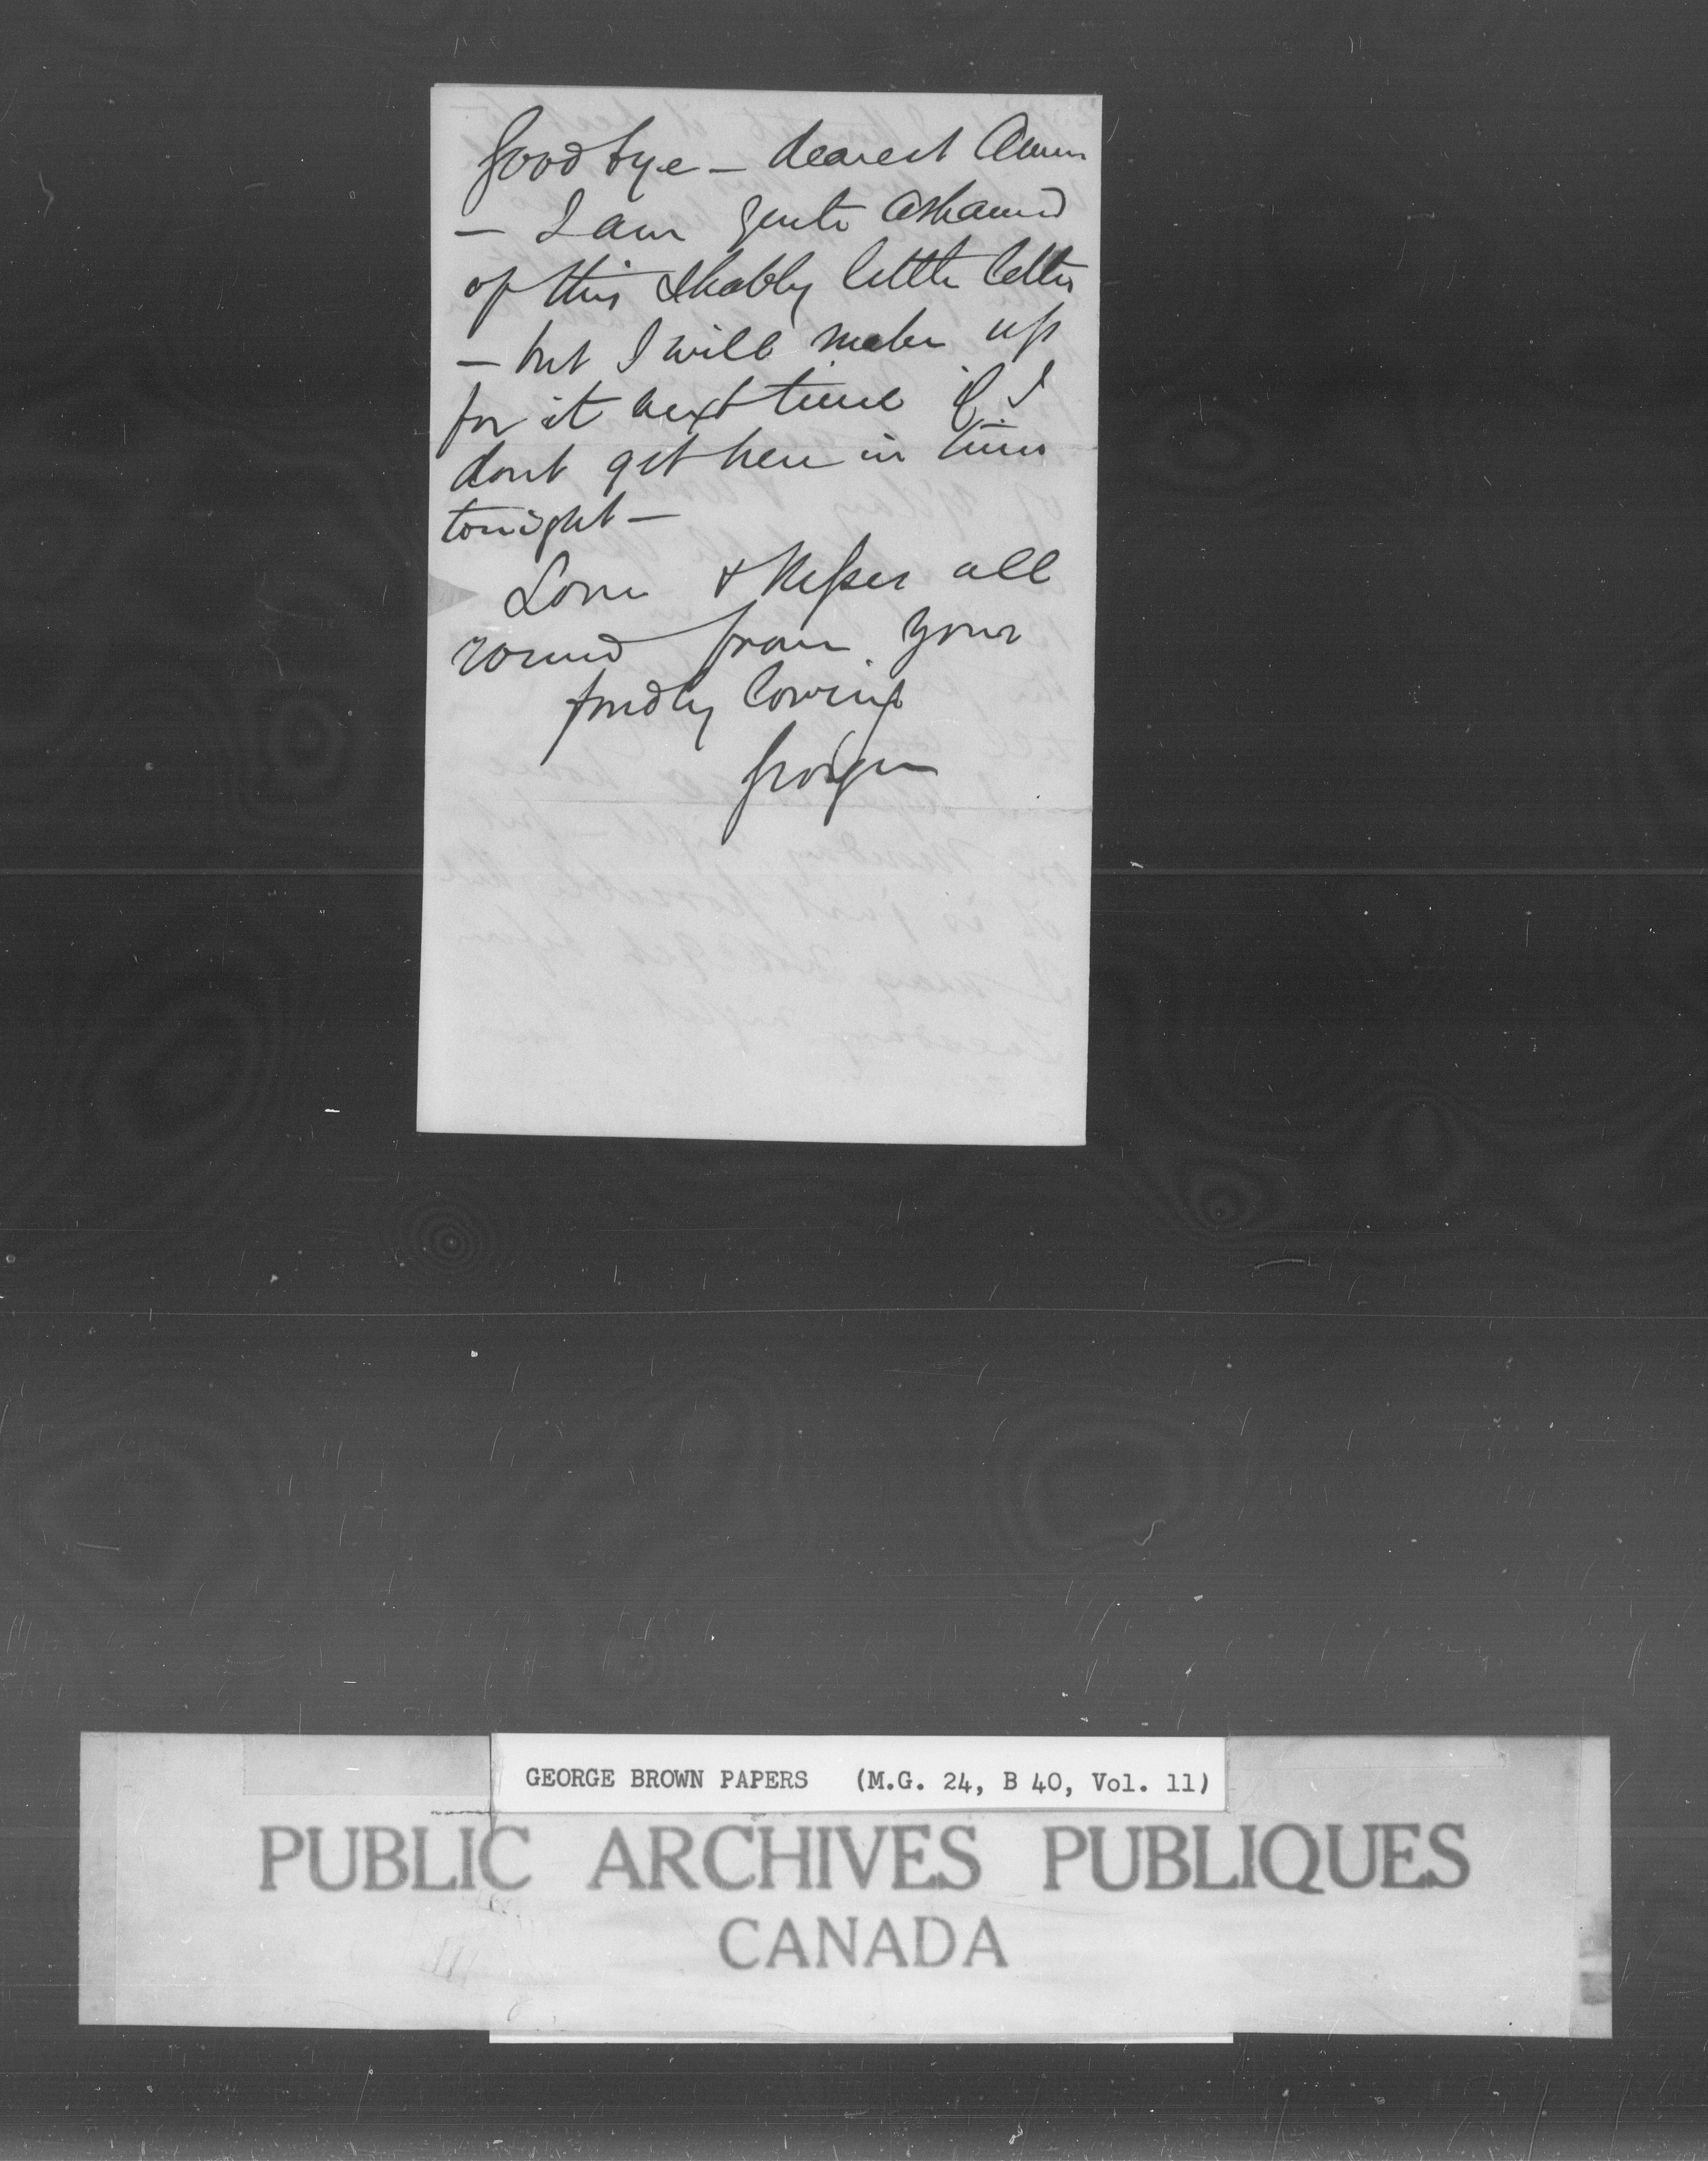 Good bye – dearest Anne
– I am quite ashamed
of this shabby little letter
– but I will make up
for it next time if I
dont get here in time
tonight –
Love & kisses all
round from your
fondly loving
George
GEORGE BROWN PAPERS (M.G. 24, B 40, Vol. 11)
PUBLIC ARCHIVES PUBLIQUES
CANADA